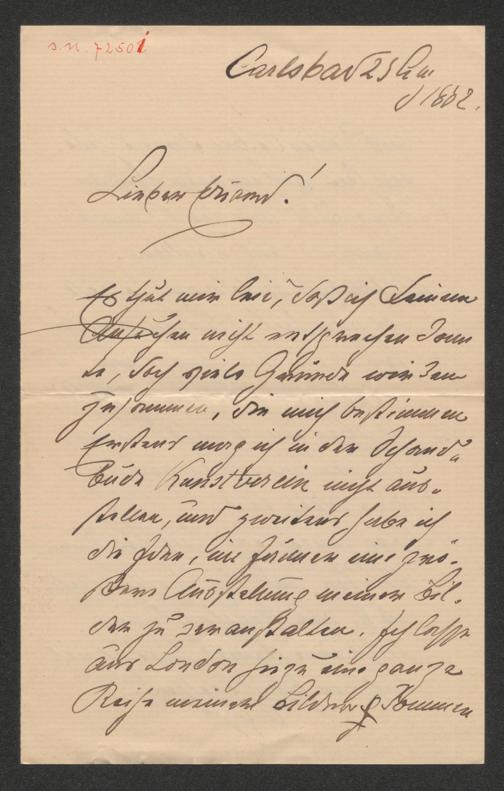 S.N. 72501
Carlsbad 25
1882.
Lieber Freund!
Es thut mir leid, daß ich Deinem
Ansuchen nicht entsprechen konn
te, doch viele Gründe
zusammen, die mich bestimmen
Erstens mag ich in der Schand-
bude Kunstverein nicht aus-
stellen, und zweitens habe ich
die Idee, im eine grö-
ßere Ausstellung meiner Bil-
der zu veranstalten. Ich lasse
aus London hiezu eine ganze
Reihe meiner Bilder kommen